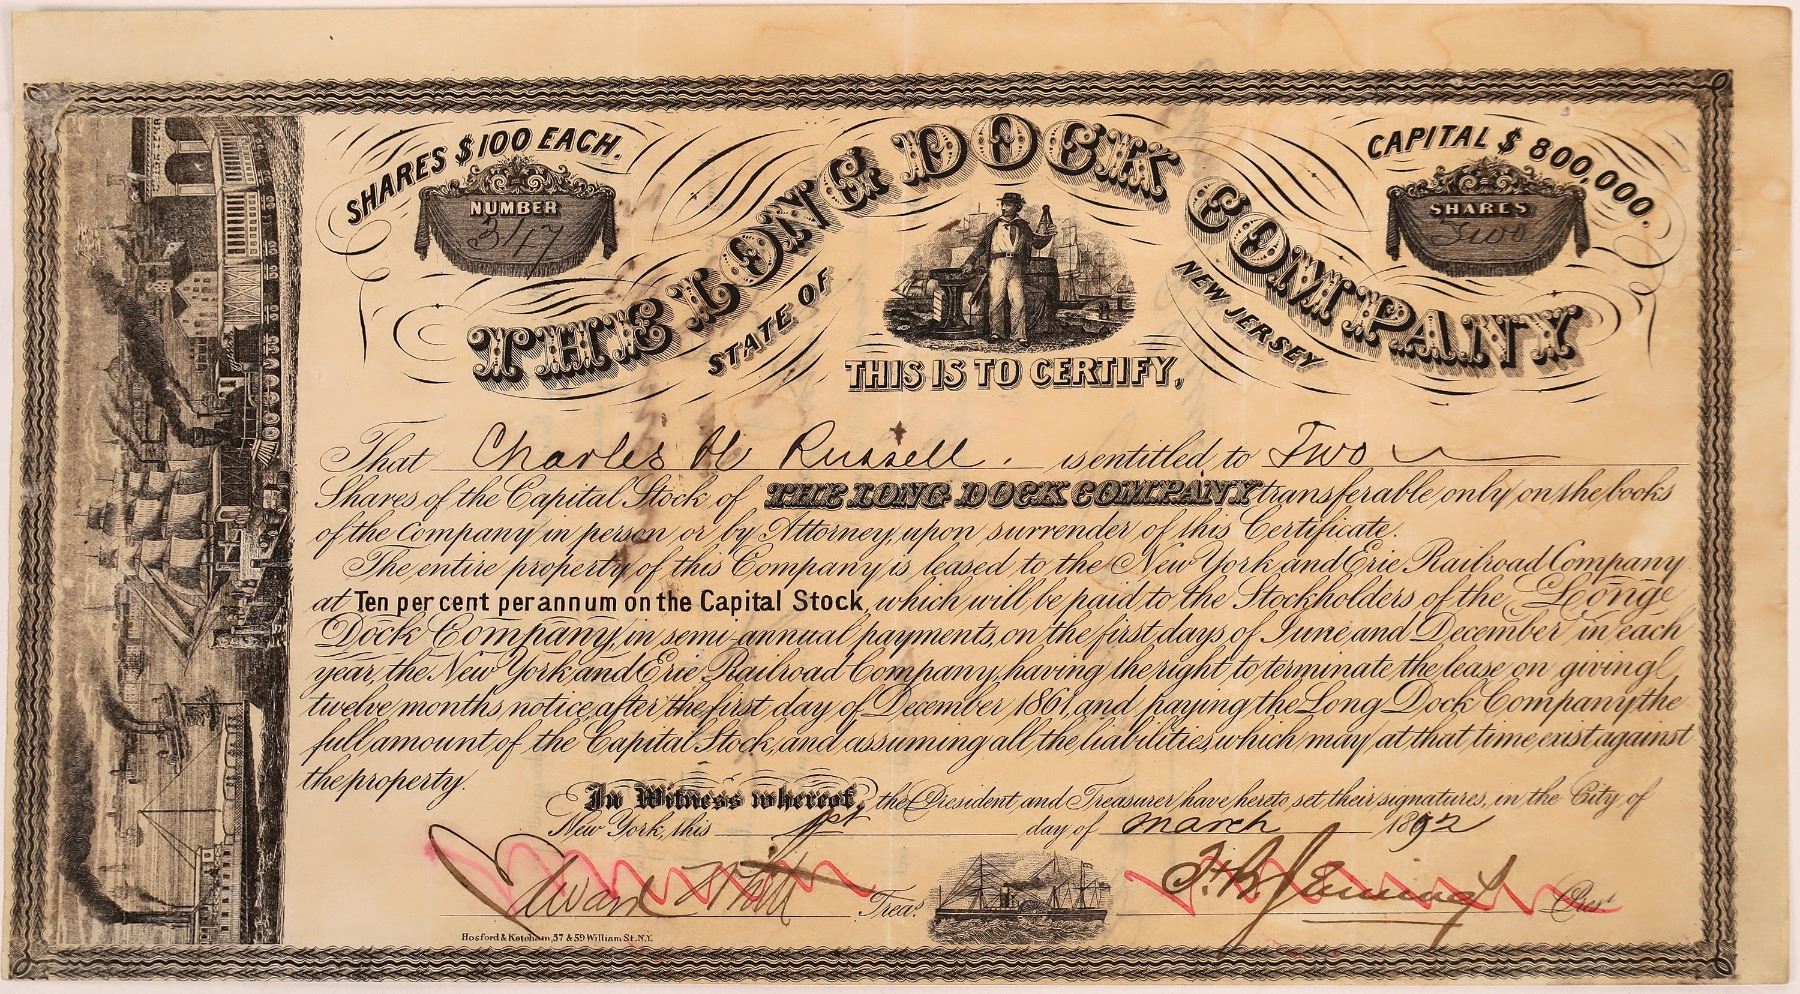 SHARES $100 EACH.
CAPITAL $800,000.
NUMBER
3147
SHARES
Two
THE LONG DOCK COMPANY
STATE OF NEW JERSEY
THIS IS TO CERTIFY,
That Charles H Russell. is entitled to Two
Shares of the Capital Stock of THE LONG DOCK COMPANY transferable only on the books
of the Company in person or by Attorney, upon surrender of this Certificate.
The entire property of this Company is leased to the New York and Erie Railroad Company
at Ten per cent per annum on the Capital Stock, which will be paid to the Stockholders of the Long
Dock Company, in semi-annual payments, on the first days of June and December in each
year, the New York and Erie Railroad Company, having the right to terminate the lease on giving
twelve months notice, after the first day of December 1861, and paying the Long Dock Company the
full amount of the Capital Stock, and assuming all the liabilities which may at that time exist against
the property.
In Witness whereof, the President and Treasurer have hereto set their signatures, in the City of
New York, this 1st day of March 1892
Edward White Treas.
J. B. Jennings Prest
Hosford & Ketcham, 57 & 59 William St. N.Y.